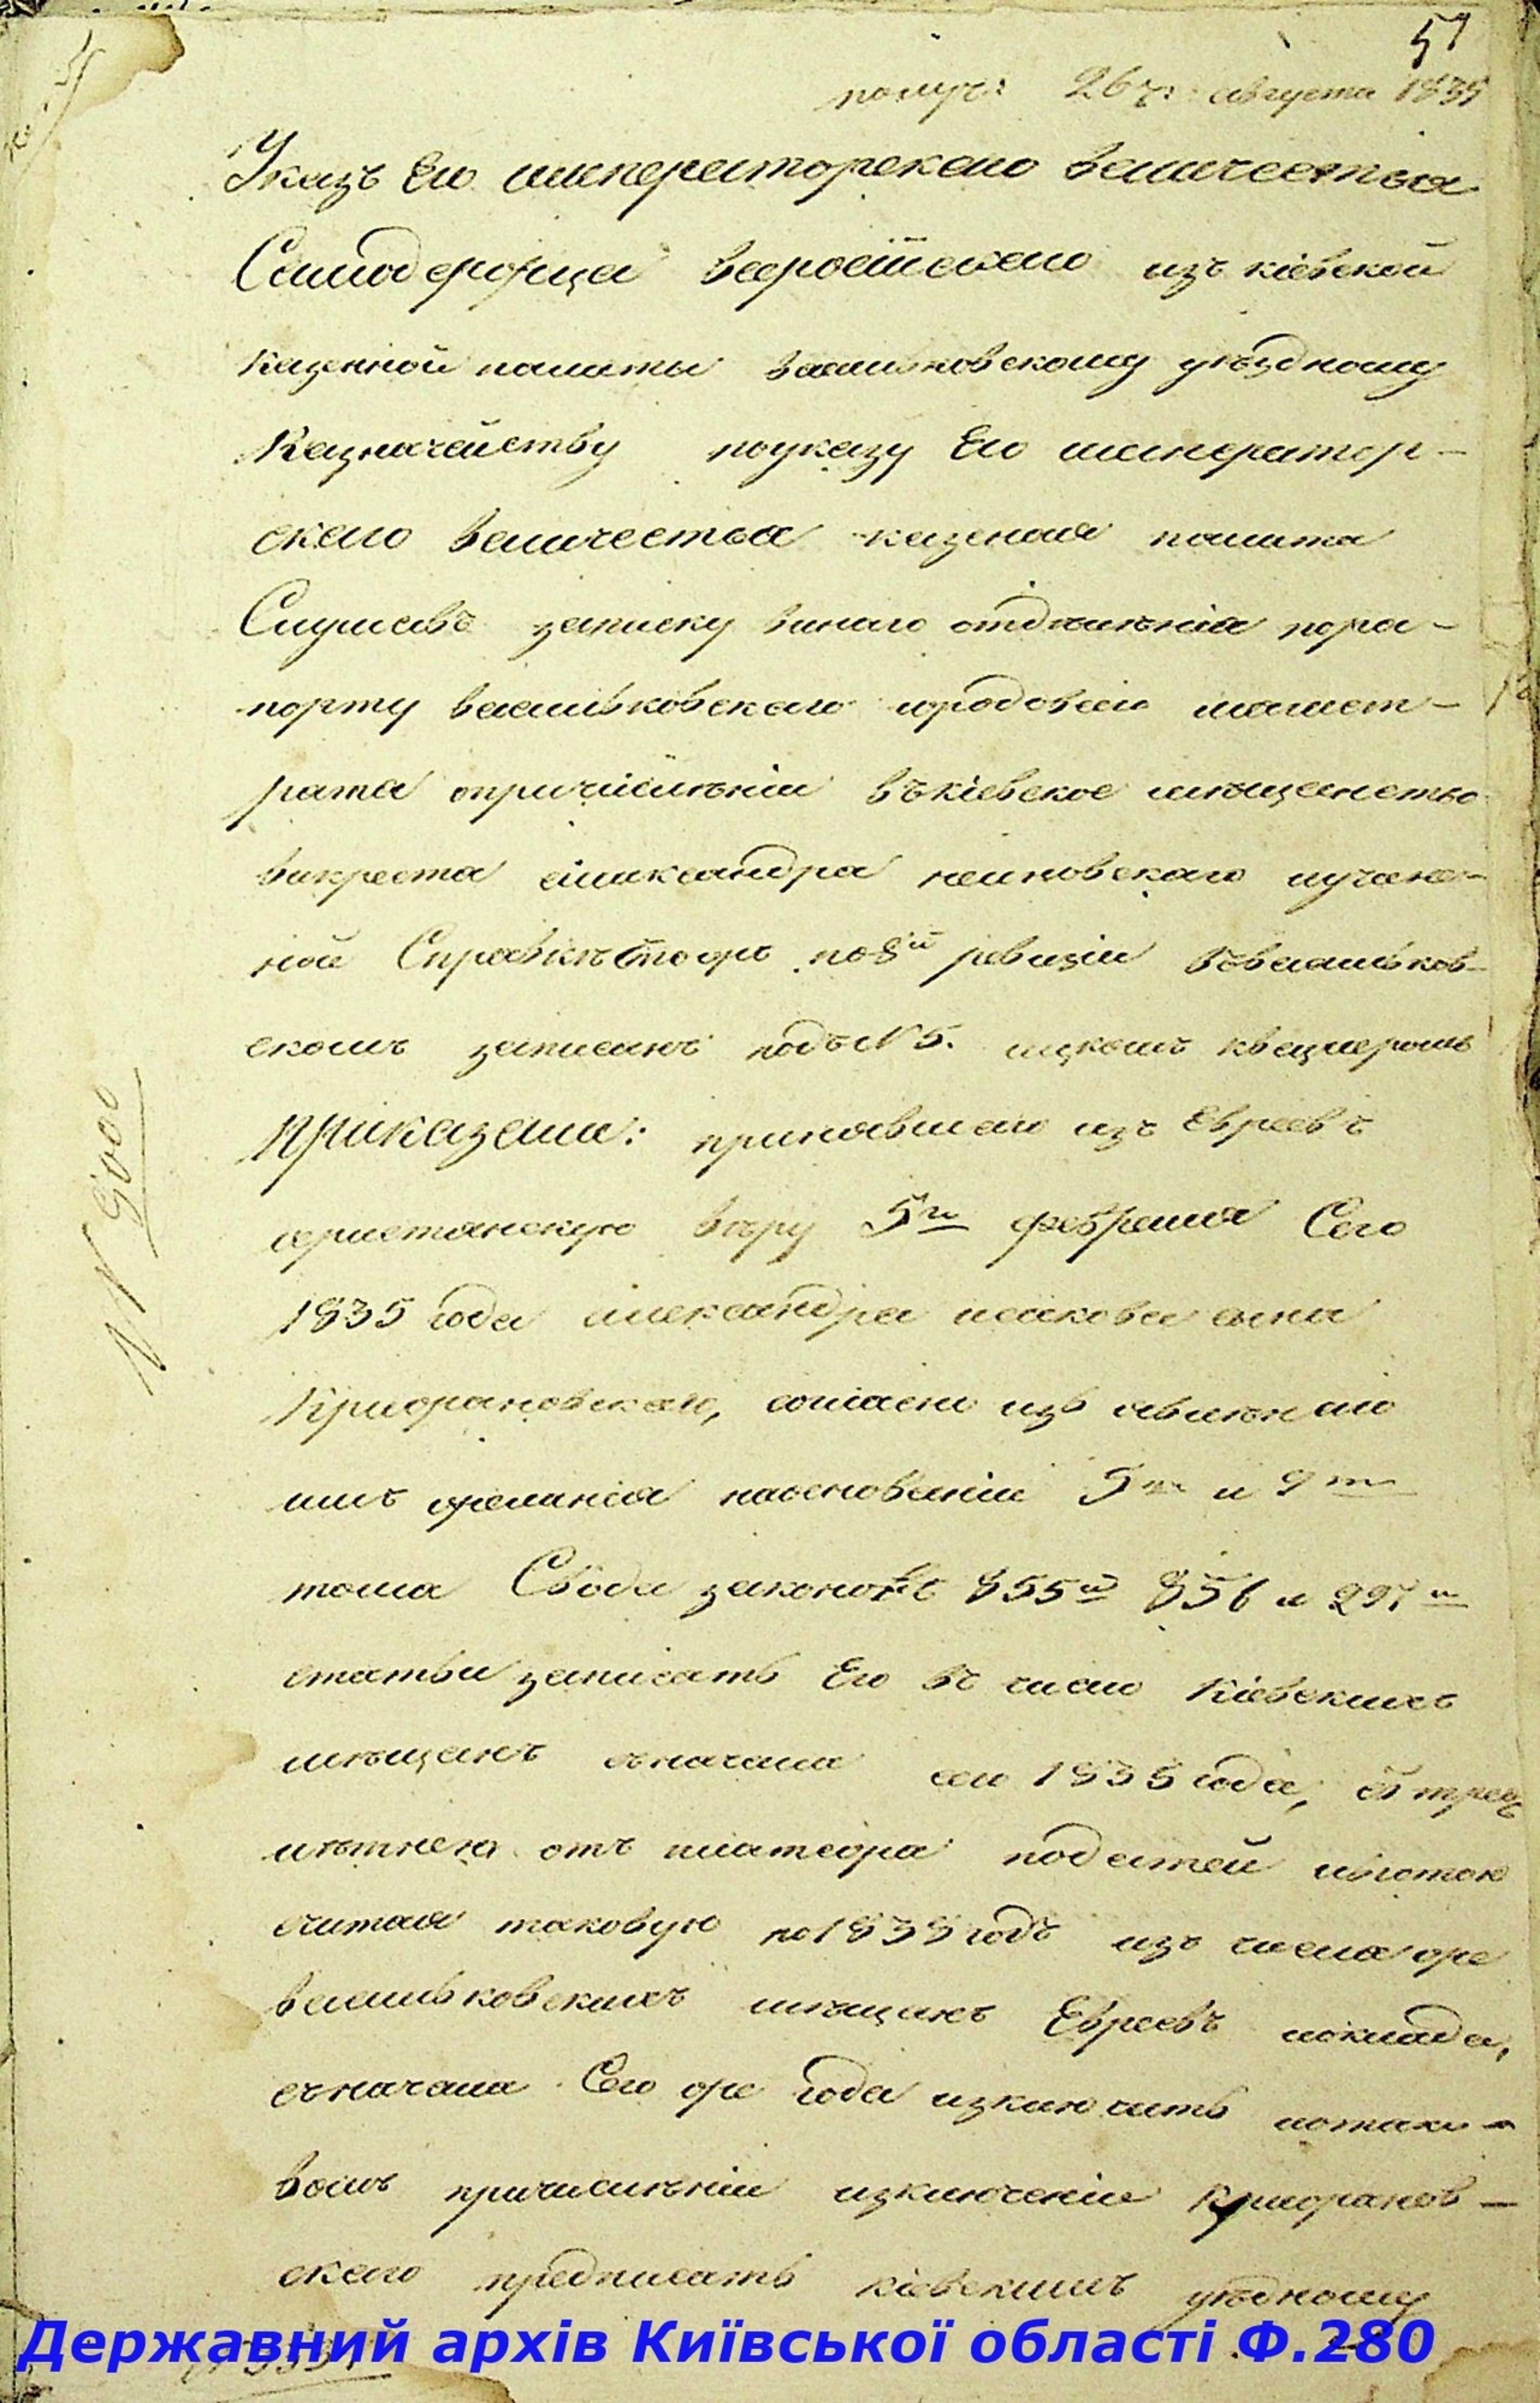 51
получ: 26 ч: августа 1835
Указъ Его императорскаго величества
Самодержца всероссійскаго изъ кіевской
казенной палаты васильковскому уѣздному
Казначейству поуказу Его император-
скаго величества казеная палата
Слушавъ записку винаго отдѣлѣнія пора-
порту васильковскаго городоваго магист-
рата опричислѣніи въкіевское мѣщанство
викреста александра
ной Справкѣ что онъ по 8й ревизіи въвасильков-
скомъ записанъ подъ N 5.
Приказали: принявшаго изъ Евреевъ
христіанскую вѣру 5го февраля Сего
1835 года александра исакова сына
Крижановскаго, согласно изъ явленнаго
имъ желанія наосновеніи 5го и 9го
тома Свода законовъ 855й 856 и 297й
статьи записать Его въ число Кіевскихъ
мѣщанъ сначала сего 1835 года, съ трех
лѣтнею отъ платежа податей льготою
считая таковую по 1838 годъ изъ числа же
васильковскихъ мѣщанъ Евреевъ оклада,
сначала Сего же года изключить отако-
вомъ причислѣніи изключеніи Крижанов-
скаго предписать кіевскимъ уѣздному
N 5000
Державний архів Київської області Ф.280